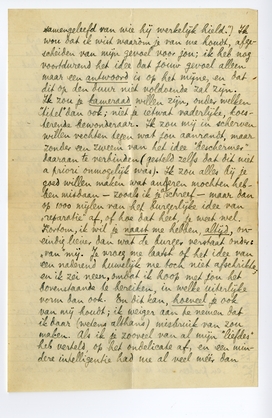 samengeleefd van wie hij werkelijk hield.) Ik
wou dat ik wist waarom je van me houdt, afge-
scheiden van mijn gevoel voor jou; ik heb nog
voortdurend het idee dat jouw gevoel alleen
maar een antwoord is op het mijne, en dat
dit op den duur niet voldoende zal zijn.
Ik zou je kameraad willen zijn, onder welken
'titel' dan ook; niet je ietwat vaderlijke, hoes-
terende bewonderaar. Ik zou mij in stukken
willen vechten tegen wat jou aanrandt, maar
zonder een zweem van het idee 'beschermer'
daaraan te verbinden (gesteld zelfs dat dit niet
a priori onmogelijk was). Ik zou alles bij je
goed willen maken wat anderen mochten heb-
ben misdaan — zooals ik je schreef — maar dan
op 1000 mijlen van het burgerlijke idee van
'reparatie' af, of hoe dat heet, je weet wel.
Kortom, ik wil je naast me hebben, altijd, on-
eindig liever dan wat de burger verstaat onder
'van mij'. Je vroeg me laatst of het idee van
een nakend huwelijk me toch niet afschrikte,
en ik zei neen, omdat ik hoop met jou het
bovenstaande te bereiken, in welke uiterlijke
vorm dan ook. En dit kan, hoeveel je ook
van mij houdt; ik weiger aan te nemen dat
ik daar (wetens althans) misbruik van zou
maken. Als ik je zooveel van al mijn 'liefdes'
heb verteld, op het onbelicate af, en een min-
dere intelligentie had me al veel meer dan